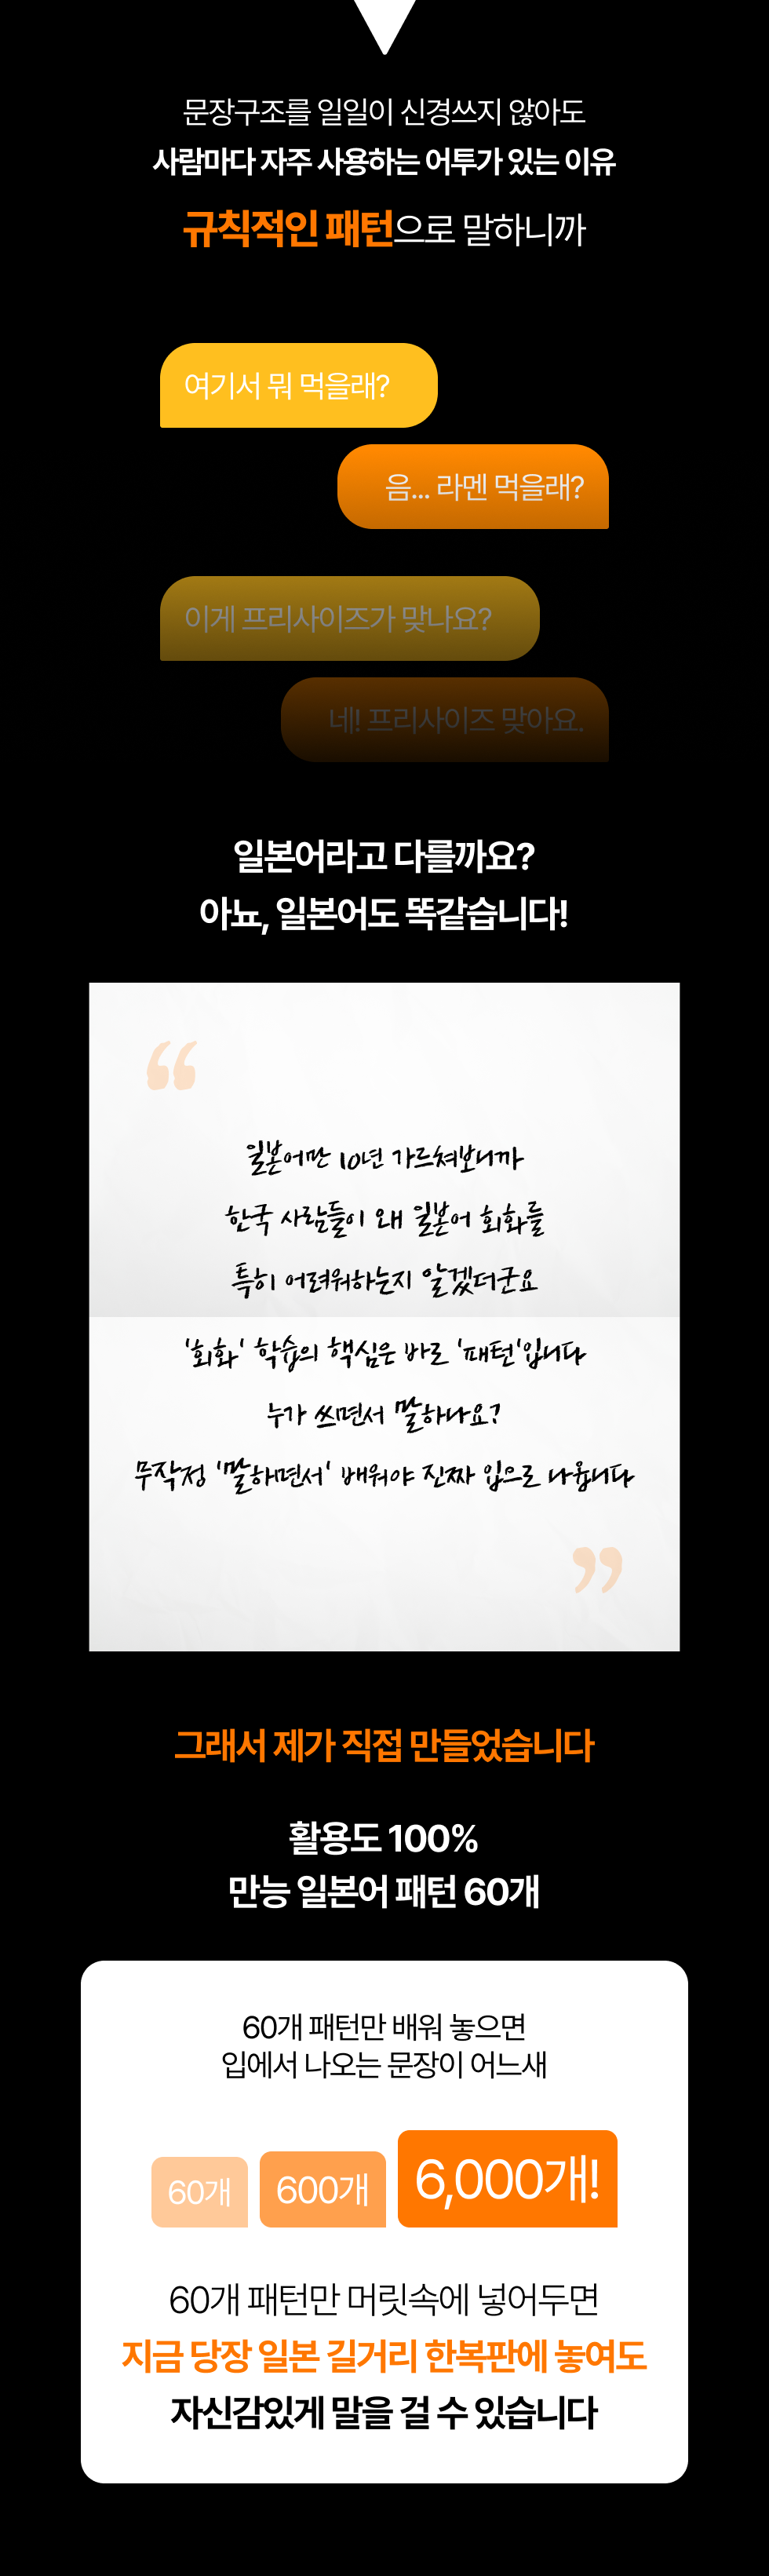 문장구조를 일일이 신경쓰지 않아도
사람마다 자주 사용하는 어투가 있는 이유
규칙적인 패턴으로 말하니까
여기서 뭐 먹을래?
음... 라멘 먹을래?
이게 프리사이즈가 맞나요?
네! 프리사이즈 맞아요.
일본어라고 다를까요?
아뇨, 일본어도 똑같습니다!
“
일본어만 10년 가르쳐보니까
한국 사람들이 왜 일본어 회화를
특히 어려워하는지 알겠더군요
'회화' 학습의 핵심은 바로 '패턴'입니다
누가 쓰면서 말하나요?
무작정 '말하면서' 배워야 진짜 입으로 나옵니다
”
그래서 제가 직접 만들었습니다
활용도 100%
만능 일본어 패턴 60개
60개 패턴만 배워 놓으면
입에서 나오는 문장이 어느새
60개 600개 6,000개!
60개 패턴만 머릿속에 넣어두면
지금 당장 일본 길거리 한복판에 놓여도
자신감있게 말을 걸 수 있습니다